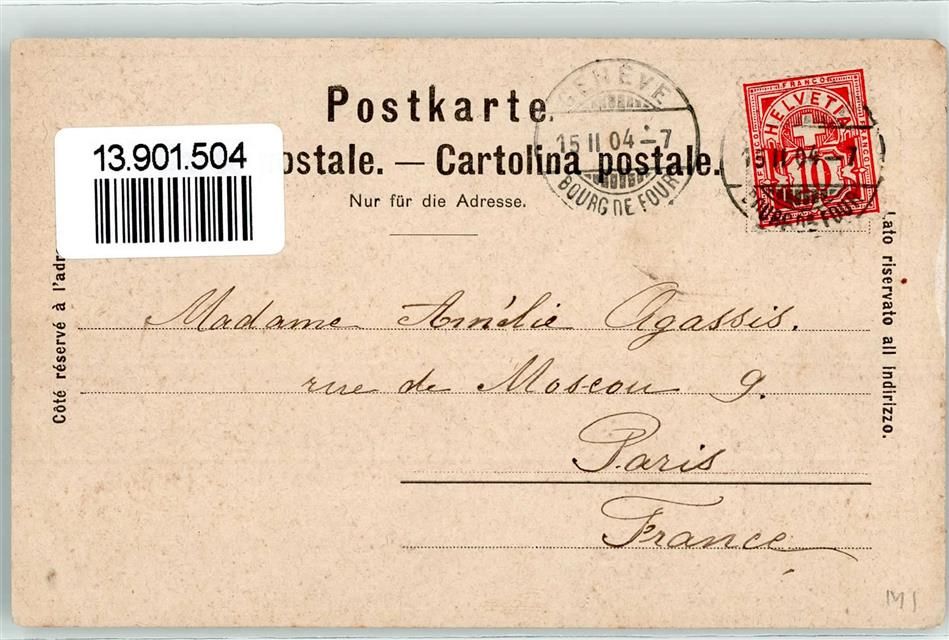 Postkarte.
13.901.504
ostale. — Cartolina postale.
Nur für die Adresse.
GENÈVE
15 II 04 – 7
BOURG DE FOUR
FRANCO
HELVETIA
FRANCO
10
15 II 04 – 7
BOURG DE FOUR
Côté réservé à l'adr
Lato riservato all indirizzo.
Madame Amélie Agassis.
rue de Moscou 9.
Paris
France